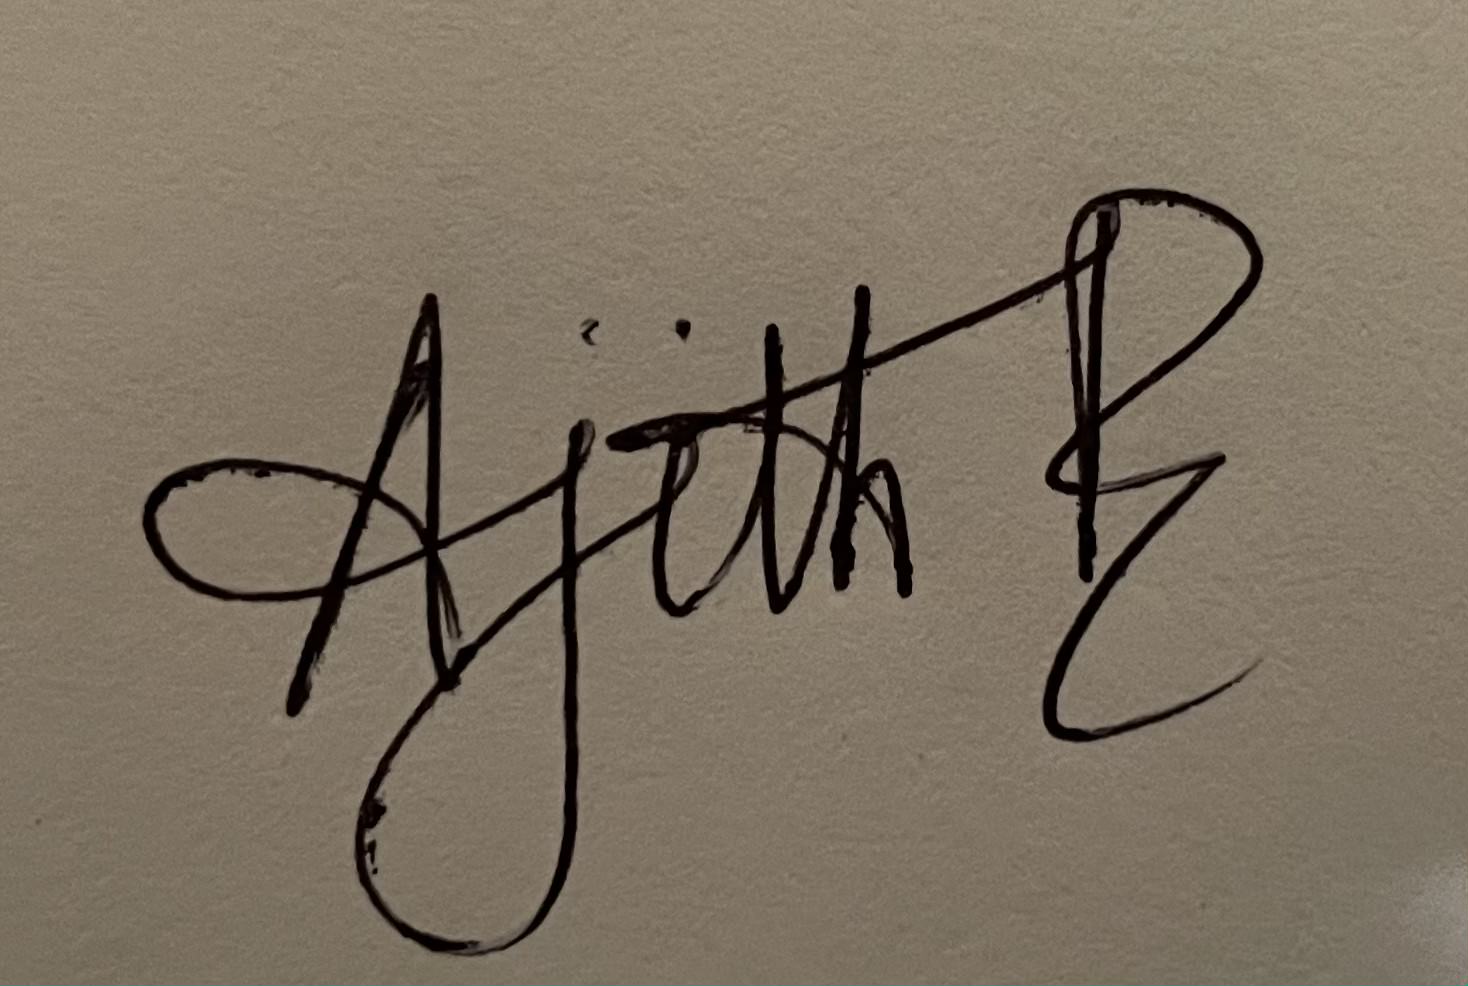 Ajith R